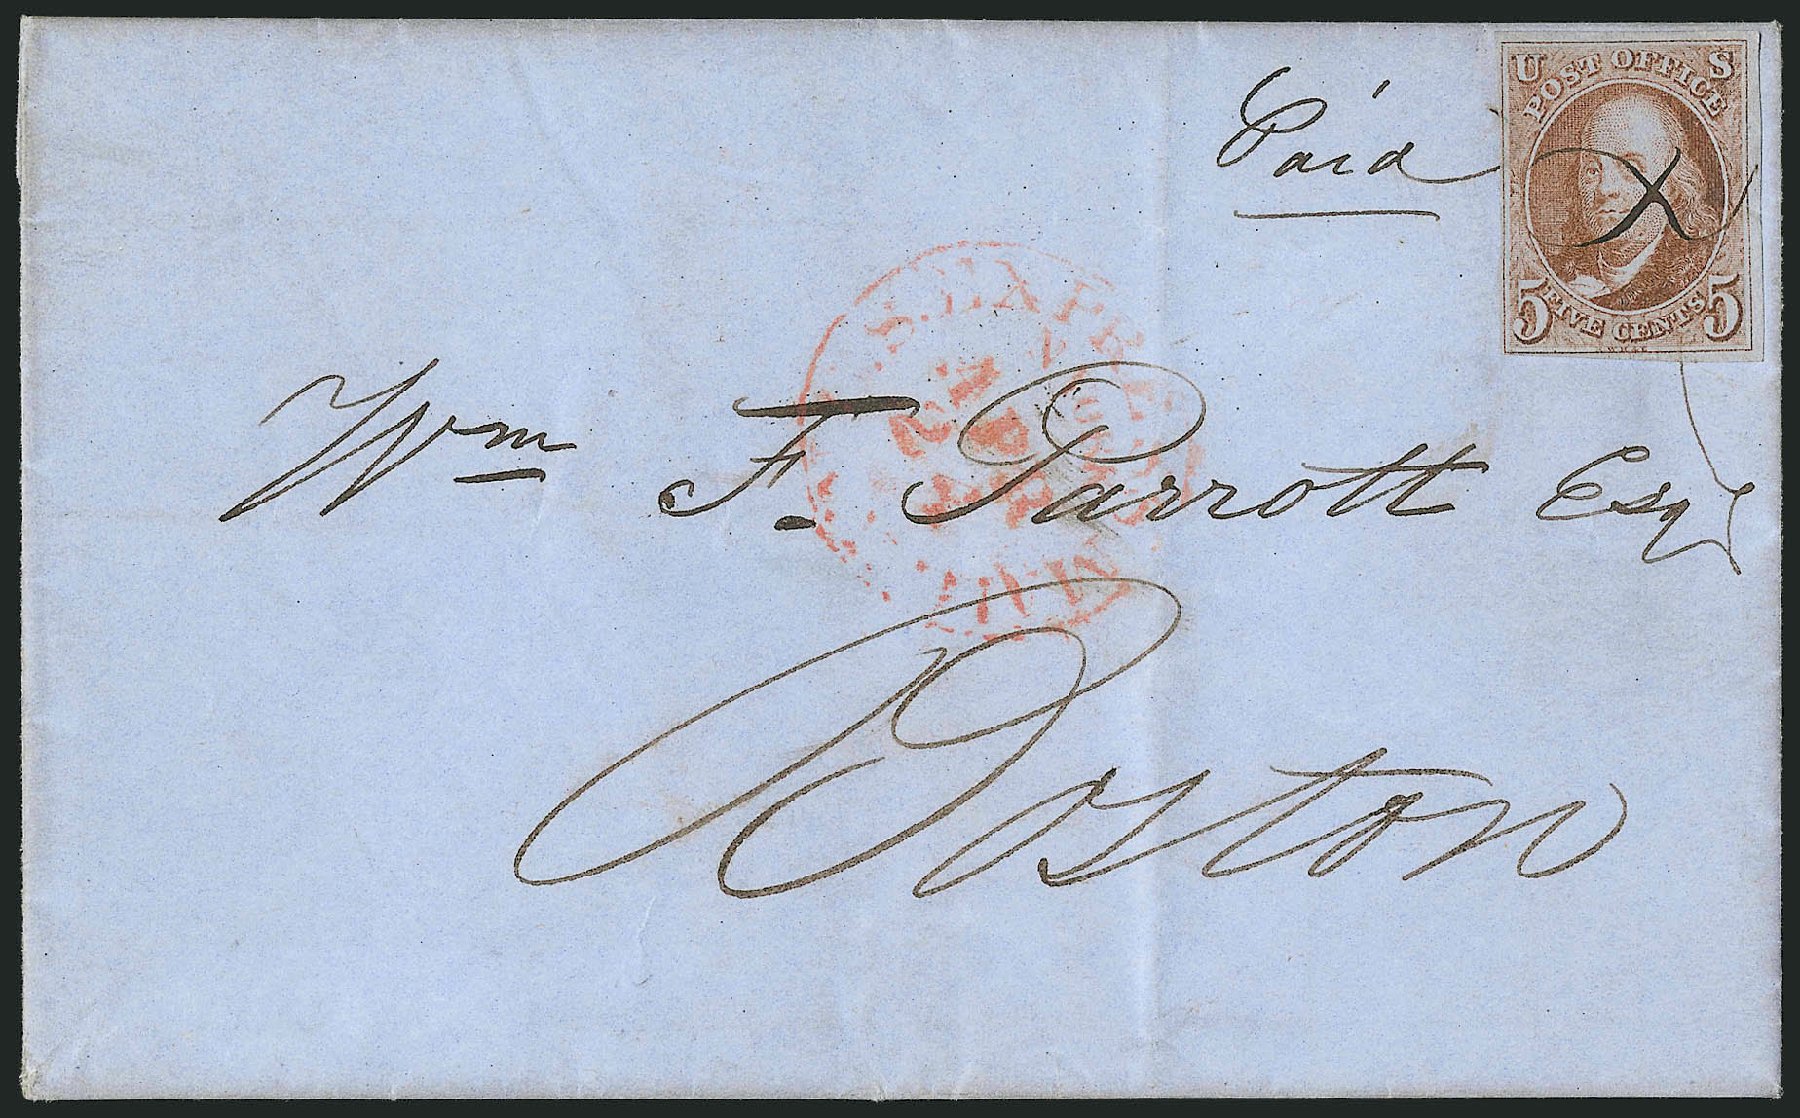 Paid
U S
POST OFFICE
X
5 FIVE CENTS 5
U.S. EXPRESS MAIL
N. Y.
Wm F. Parrott Esq
Boston